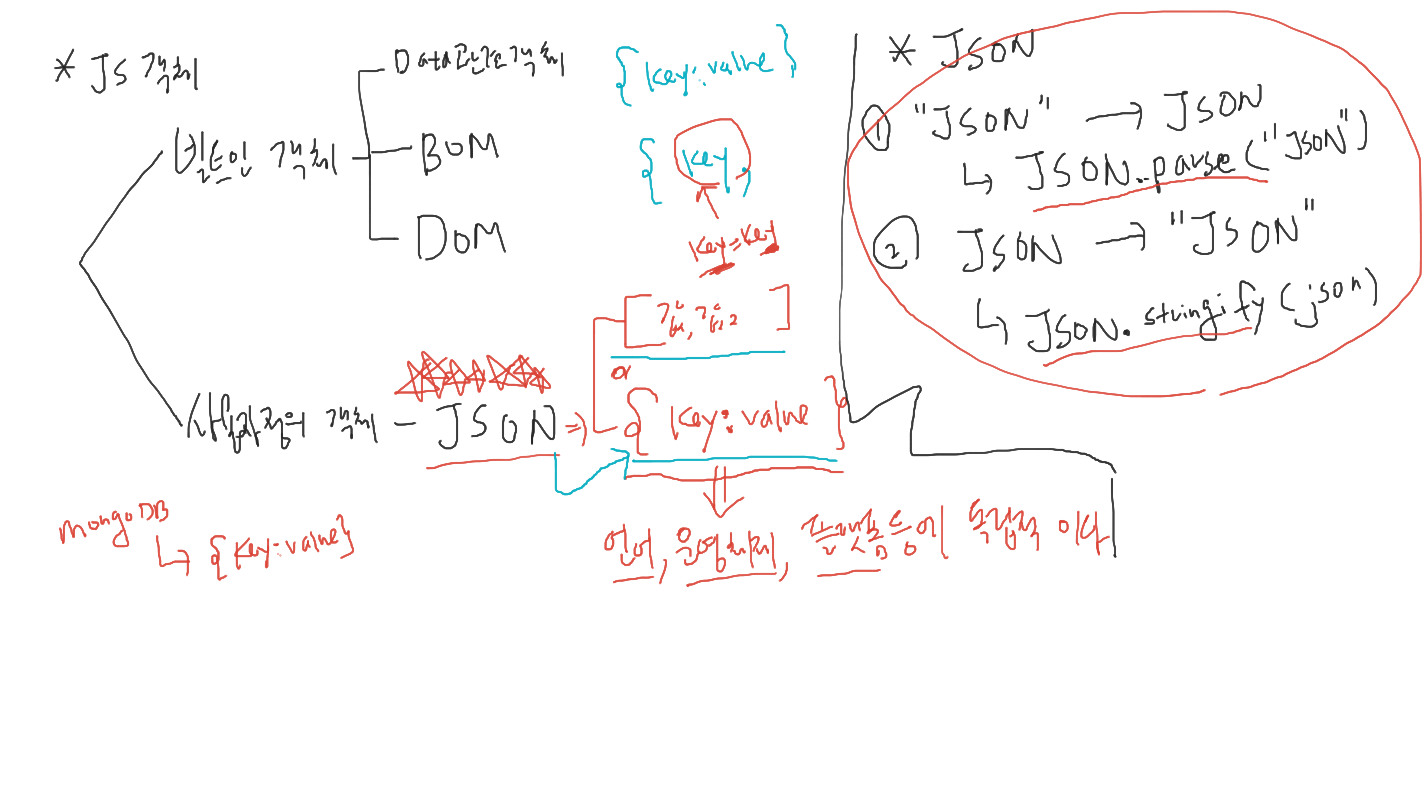 * JS 객체
Data관련 객체
빌트인 객체
BOM
DOM
사용자정의 객체 - JSON ⇒
{key:value}
{key,}
key=key
[값1, 값2]
or
{key:value}
언어, 운영체제, 플랫폼 등에 독립적 이다
mongoDB
↳ {key:value}
* JSON
① "JSON" → JSON
↳ JSON.parse("JSON")
② JSON → "JSON"
↳ JSON.stringify(json)